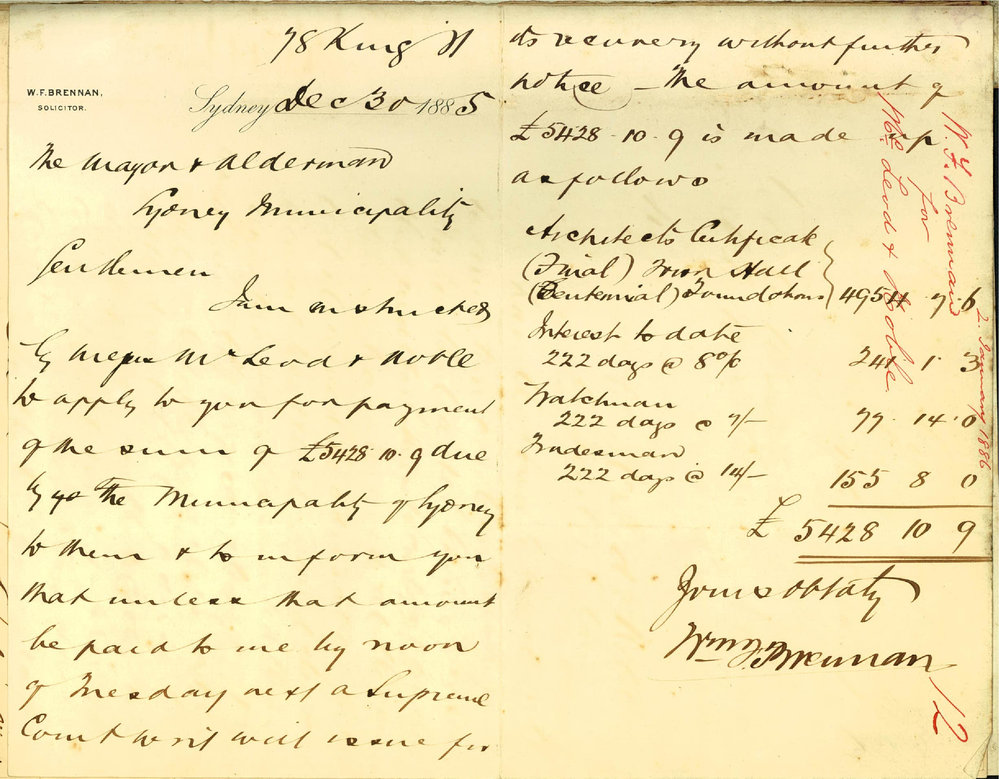 78 King St
W. F. BRENNAN,
SOLICITOR.
Sydney Dec 30 1885
The Mayor & Alderman
Sydney Municipality
Gentlemen
I am instructed
by Messrs McLeod & Noble
to apply to you for payment
of the sum of £5428.10.9 due
by The Municipality of Sydney
to them & to inform you
that unless that amount
be paid to me by noon
of Tuesday next a Supreme
Court Writ will issue for
its recovery without further
notice – The amount of
£5428.10.9 is made up
as follows
Architects Certificate
(Final) Town Hall
(Centennial) Foundations 4954 7 6
Interest to date
222 days @ 8% 241 1 3
Watchman
222 days @ 7/- 77.14.0
Tradesman
222 days @ 14/- 155 8 0
£ 5428 10 9
Yours obtly
Wm F Brennan
W. F. Brennan
for
McLeod & Noble
2 January 1886
12